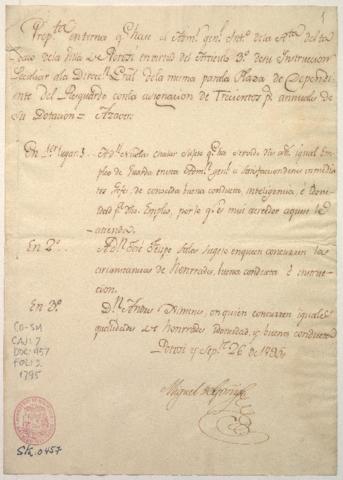 1
Propta. interina qe. hace el Admr. gral. Intno. de la Rta. del ta-
baco de la Villa de Potosi en virtud del Articulo 3º. de su Instruccion
Peculiar a la Direccn. Gral. de la misma para la Plaza de Dependi-
ente del Resguardo con la asignacion de Trecientos ps. annuales de
su Dotacion = Asaver:
En 1er. lugar
qe. ha servido igual
Empleo de Guarda en esta Admn. genl. a satisfaccion de sus inmedia-
tos Jefes, de conocida buena conducta, inteligencia, é Ydonei-
dad pa. dho. Empleo, por lo qe. es mui acredor a que se le
atienda.
En 2º. . A Dn. José Felipe Salas Sugeto en quien concurren las
circunstancias de Honrrades, buena conducta é instruc-
cion.
En 3º. Dn. Andres Ximenes, en quien concurren iguales
qualidades de honrrades Ydoneidad, y buena conducta
Potosi y Sepre. 26 de 1795
Miguel
CO-SM
CAJ: 7
DOC: 457
FOL: 2
1795
Sta. 0457